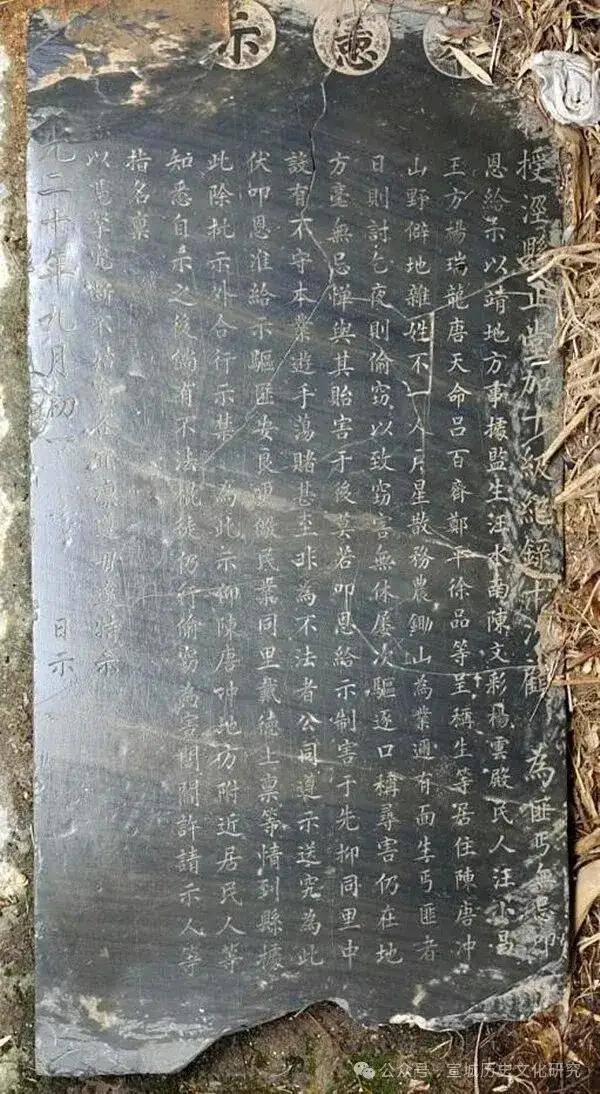 憲示
授涇縣正堂加十級紀錄十次顧 為匪丐無忌叩
恩給示以靖地方事據監生汪水南陳文彩楊雲殿民人汪小昌
王方楊瑞龍唐天命呂百齊鄭平徐品等呈稱生等居住陳唐冲
山野僻地雜姓不一人戶星散務農鋤山為業邇有面生丐匪者
日則討乞夜則偷窃以致窃害無休屡次驅逐口稱尋害仍在地
方毫無忌憚與其貽害于後莫若叩恩給示制害于先抑同里中
設有不守本業遊手蕩賭甚至非為不法者公同遵示送究為此
伏叩恩准給示驅匪安良更儆民業同里戴德上禀等情到縣據
此除批示外合行示禁為此示仰陳唐冲地坊附近居民人等
知悉自示之後倘有不法棍徒仍行偷窃為害閭閻許諸示人等
指名禀
以憑拏究斷不姑寬各宜凜遵毋違特示
光二十年九月初 日示
公众号·宣城历史文化研究